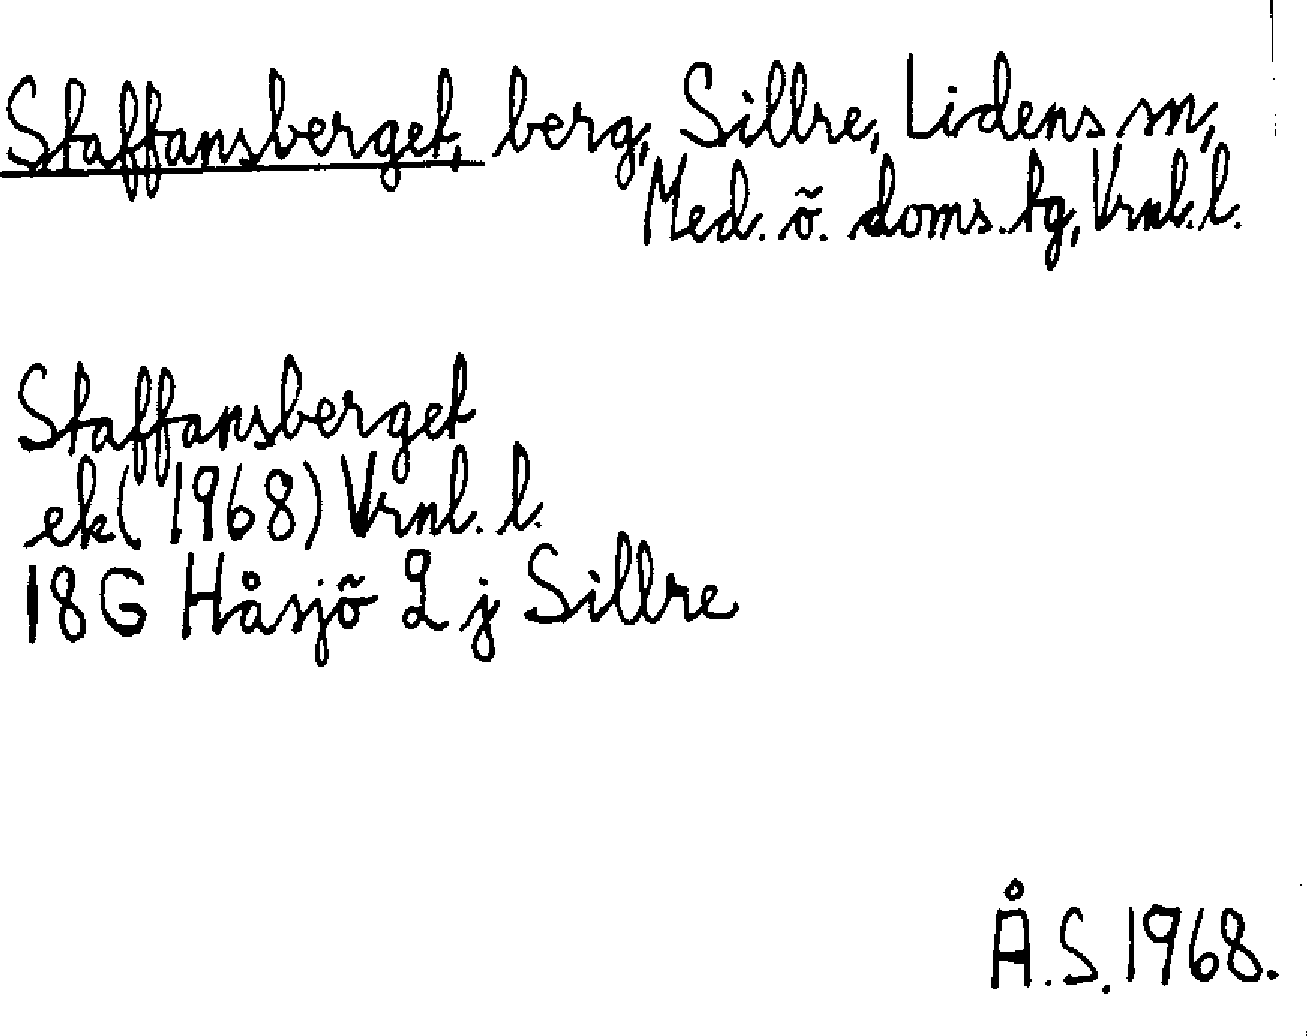 Staffansberget, berg, Sillre, Lidens sn,
Med. õ. doms. tg, Vrnl. l.
Staffansberget
ek (1968) Vrnl. l.
18G Håsjõ 2 j Sillre
Å.S. 1968.